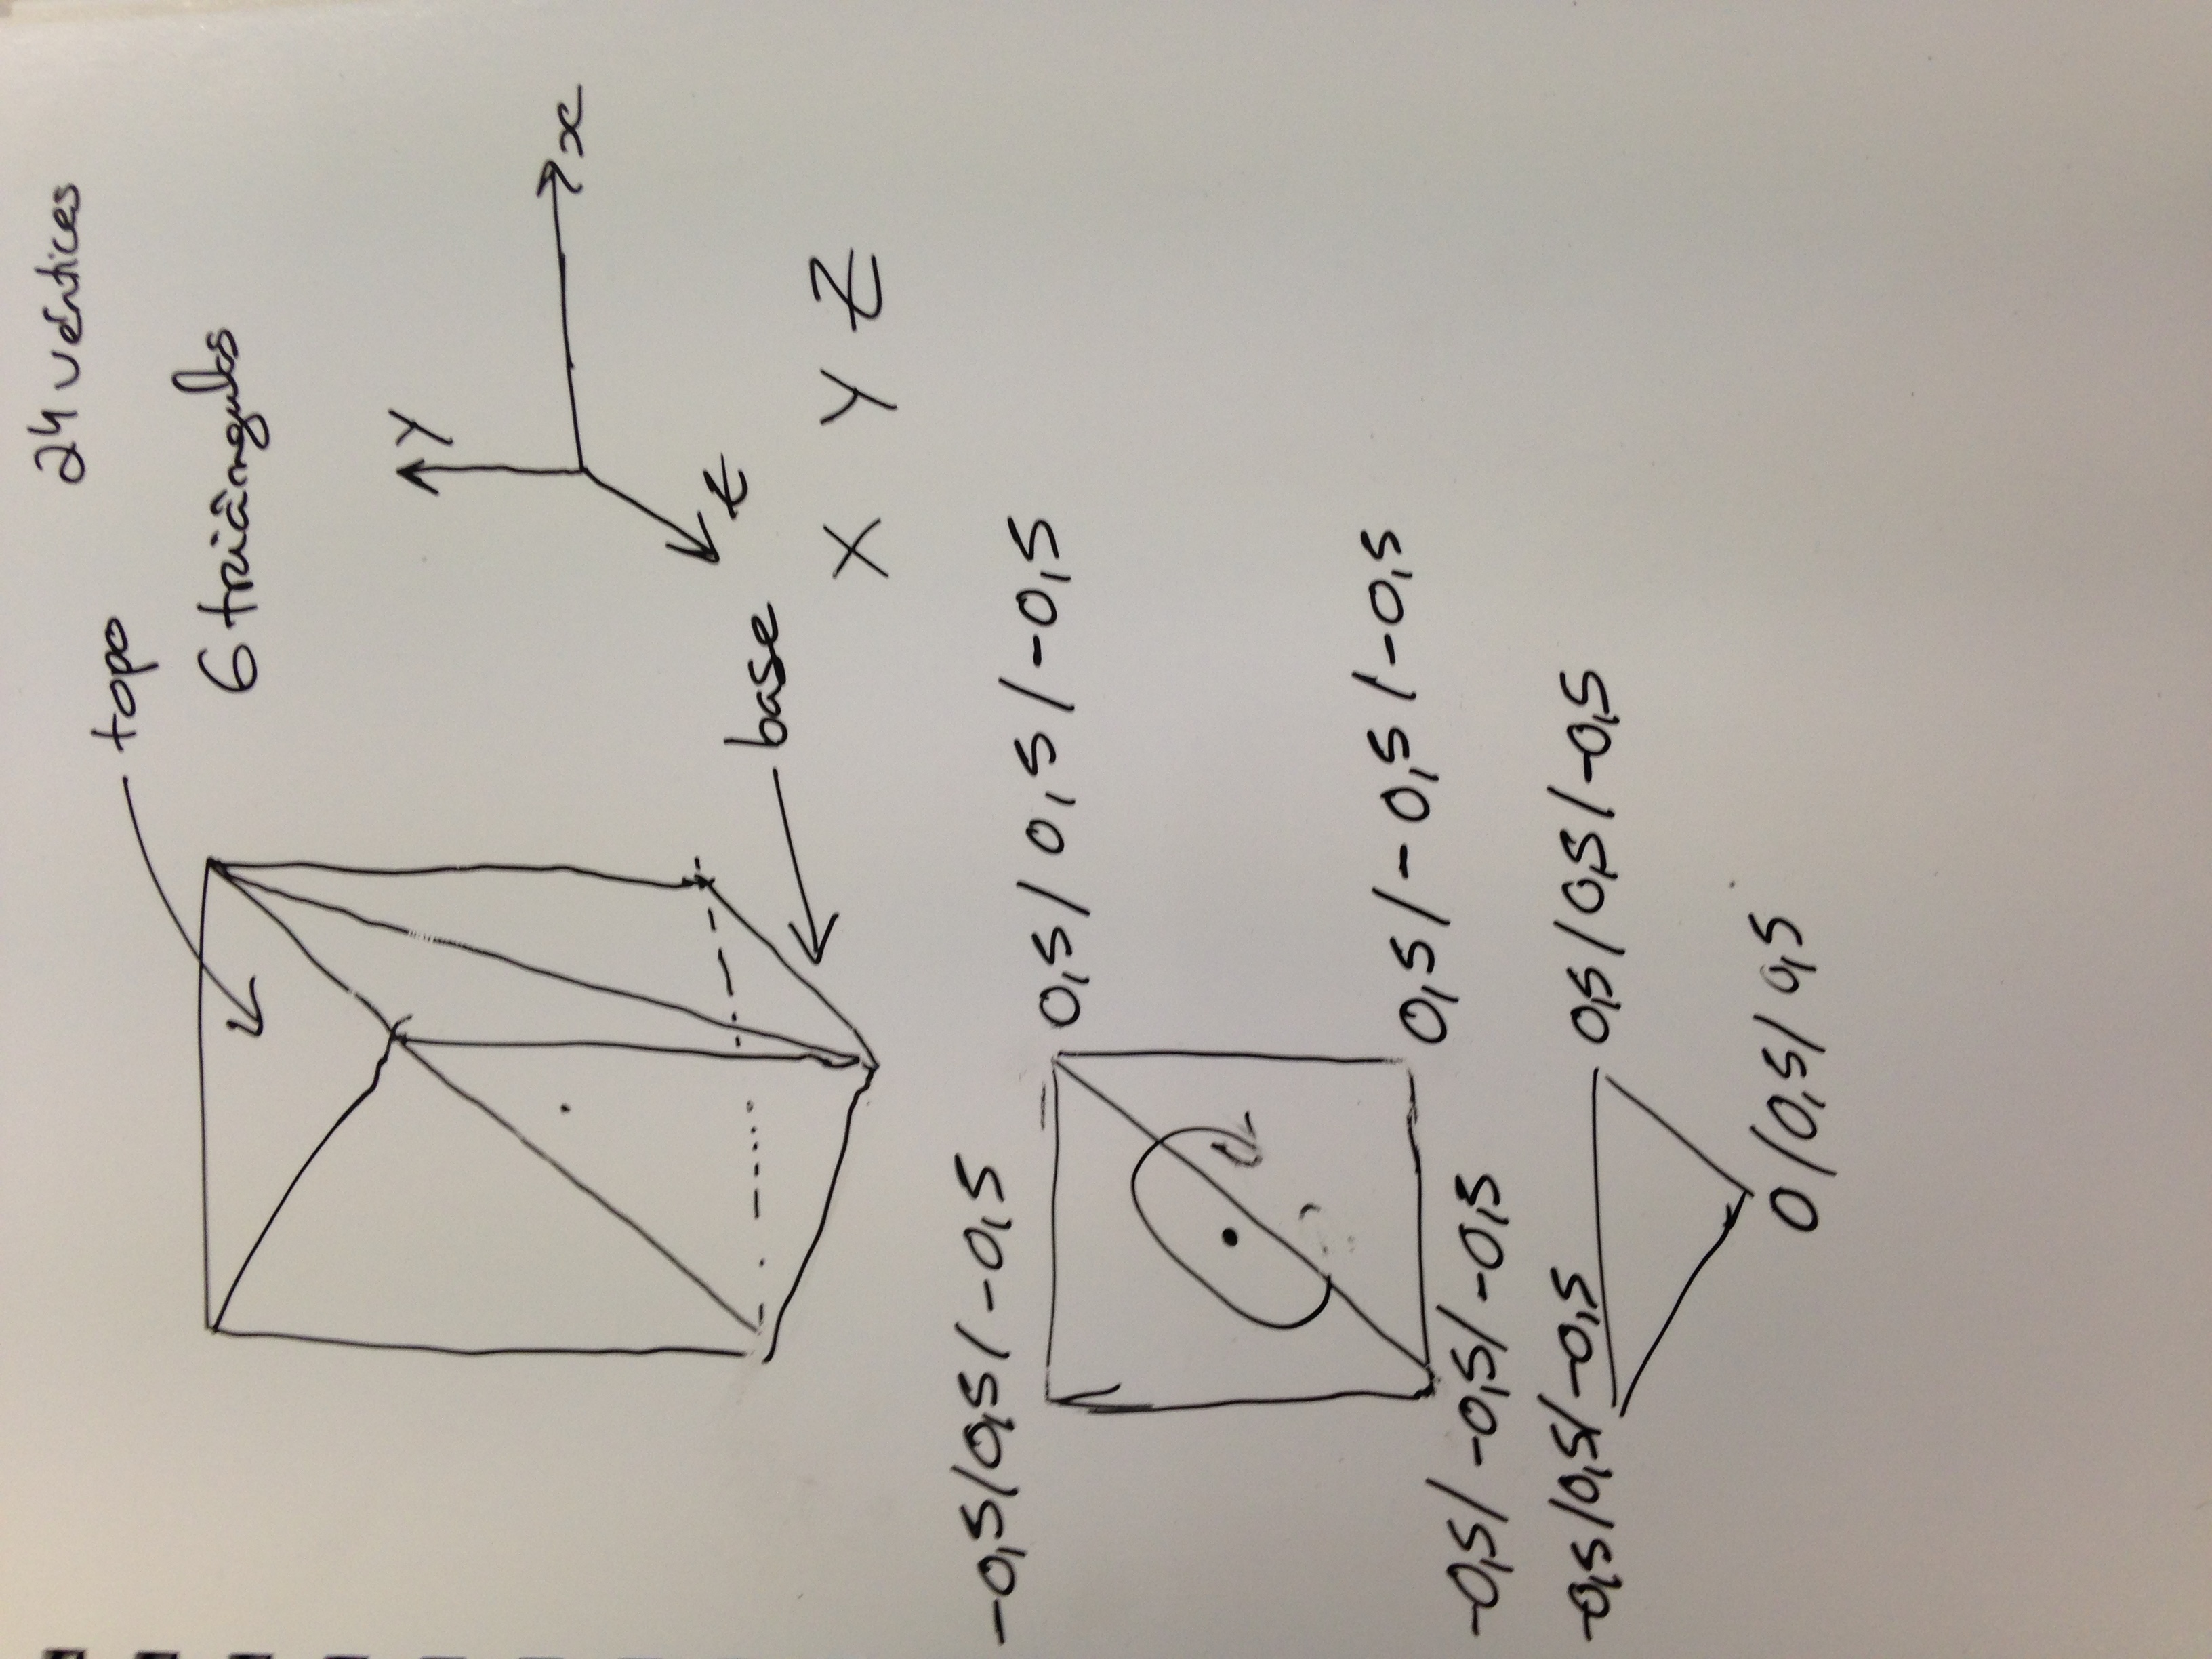 24 vértices
topo
6 triângulos
Y
x
z
base
X Y Z
-0,5/0,5/-0,5
0,5/0,5/-0,5
0,5/-0,5/-0,5
-0,5/-0,5/-0,5
-0,5/0,5/-0,5
0,5/0,5/-0,5
0/0,5/0,5